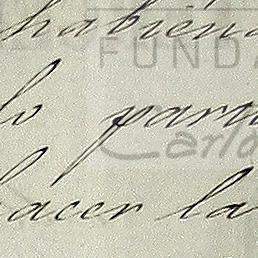 habiend
FUNDA
lo para
Carlo
hacer la